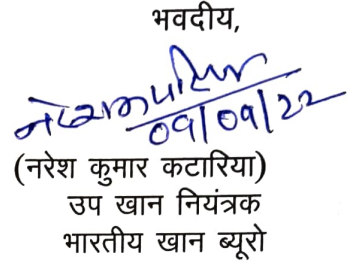 भवदीय,
09/09/22
(नरेश कुमार कटारिया)
उप खान नियंत्रक
भारतीय खान ब्यूरो